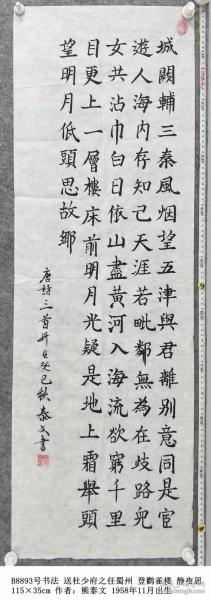 城闕輔三秦風烟望五津與君離別意同是宦
遊人海内存知己天涯若毗鄰無為在歧路兒
女共沾巾白日依山盡黃河入海流欲窮千里
目更上一層樓床前明月光疑是地上霜舉頭
望明月低頭思故鄉
唐詩三首
癸巳秋泰文書
B8893号书法 送杜少府之任蜀州 登鹳雀楼 静夜思
115×35cm 作者：熊泰文 1958年11月出生